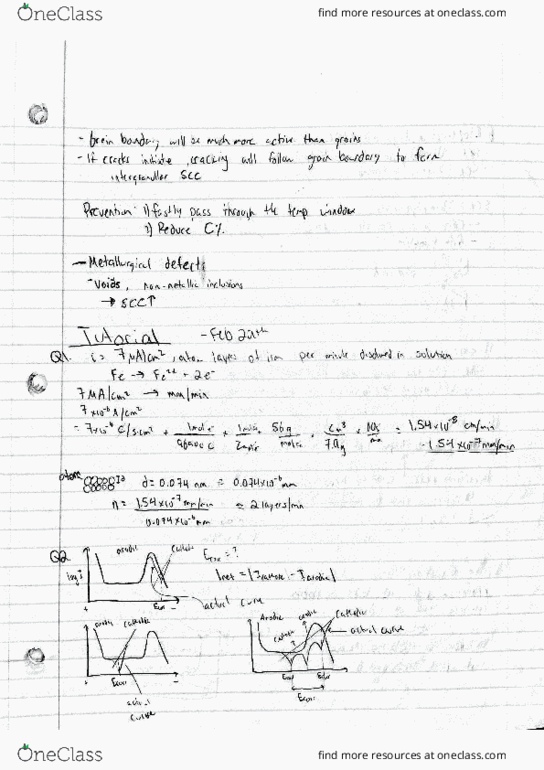 OneClass
find more resources at oneclass.com
- Grain boundary will be much more active than grains
- If cracks initiate, cracking will follow grain boundary to form
intergranular SCC
Prevention: 1) fastly pass through the temp window
2) Reduce C%.
- Metallurgical defects
- Voids, non-metallic inclusions
→ SCC↑
Tutorial - Feb
Q1. i = 7 μA/cm², atom layers of iron per minute dissolved in solution
Fe → Fe²⁺ + 2e⁻
7 μA/cm² → mm/min
7×10⁻⁶ A/cm²
= 7×10⁻⁶ C/s·cm² × 56g = 1.54×10⁻⁸ cm/min
1.54×10⁻⁷ mm/min
atoms d = 0.074 nm = 0.074×10⁻⁶ mm
n = 1.54×10⁻⁷ mm/min = 2 layers/min
0.074×10⁻⁶ mm
Q2
anodic
cathodic
Ecorr = ?
log I
Inet = |Icathodic - Ianodic|
actual curve
Ecorr
+
-
anodic cathodic
Anodic
cathodic
actual curve
Ecorr
+
-
actual
curve
Ecorr
OneClass
find more resources at oneclass.com